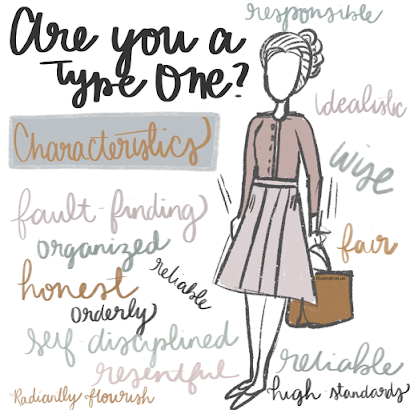 responsible
Are you a
Type One?
idealistic
Characteristics
wise
fault-finding
fair
organized
reliable
honest
orderly
self-disciplined
reliable
resentful
high standards
Radiantly flourish